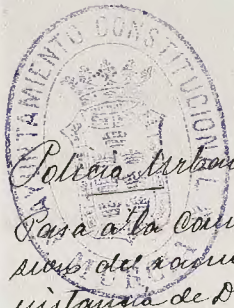 AYUNTAMIENTO CONSTITUCIONAL
Policía Urban
Pasa a la Comi
sion del ramo
instancia de D